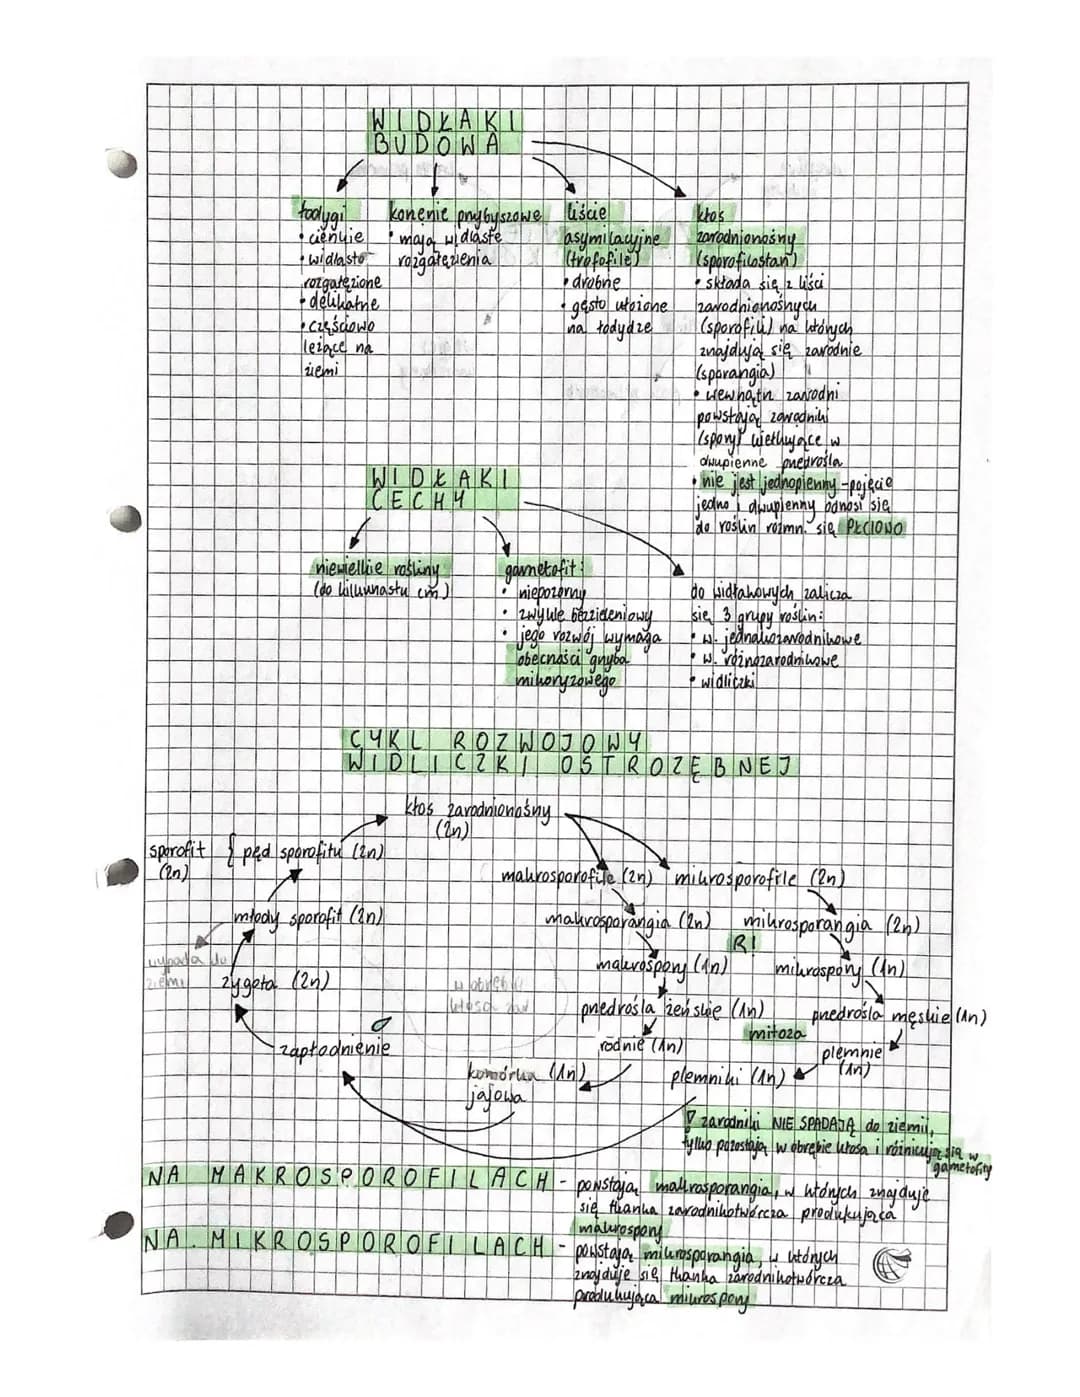 WIDŁAKI
BUDOWA
łodygi
• cienkie
• widlasto
rozgałęzione
• delikatne
• częściowo
leżące na
ziemi
korzenie przybyszowe
• mają widlaste
rozgałęzienia
liście
asymilacyjne
(trofofile)
• drobne
• gęsto ułożone
na łodydze
kłos
zarodnionośny
(sporofilostan)
• składa się z liści
zarodnionośnych
(sporofili) na których
znajdują się zarodnie
(sporangia)
• wewnątrz zarodni
powstają zarodniki
(spory) kiełkujące w
dwupienne przedrośla
• nie jest jednopienny - pojęcie
jedno i dwupienny odnosi się
do roślin rozmn. się PŁCIOWO
WIDŁAKI
CECHY
niewielkie rośliny
(do kilkunastu cm)
gametofit:
• niepozorny
• zwykle bezzieleniowy
• jego rozwój wymaga
obecności grzyba
mikoryzowego
do widłakowych zalicza
się 3 grupy roślin:
• w. jednakozarodnikowe
• w. różnozarodnikowe
• widliczki
CYKL ROZWOJOWY
WIDLICZKI OSTROZĘBNEJ
kłos zarodnionośny
(2n)
sporofit { pęd sporofitu (2n)
(2n)
makrosporofile (2n) mikrosporofile (2n)
młody sporofit (2n)
makrosporangia (2n) mikrosporangia (2n)
R!
wypada do
ziemi
makrospory (1n) mikrospory (1n)
zygota (2n)
w obrębie
kłosa zad
przedrośla żeńskie (1n) przedrośla męskie (1n)
mitoza
zapłodnienie
rodnie (1n)
plemnie
(1n)
komórka (1n)
jajowa
plemniki (1n)
∇ zarodniki NIE SPADAJĄ do ziemi,
tylko pozostają w obrębie kłosa i różnicują się w
gametofity
NA MAKROSPOROFILACH - powstają makrosporangia, w których znajduje
się tkanka zarodnikotwórcza produkująca
makrospory
NA MIKROSPOROFILACH - powstają mikrosporangia, w których
znajduje się tkanka zarodnikotwórcza
produkująca mikrospory